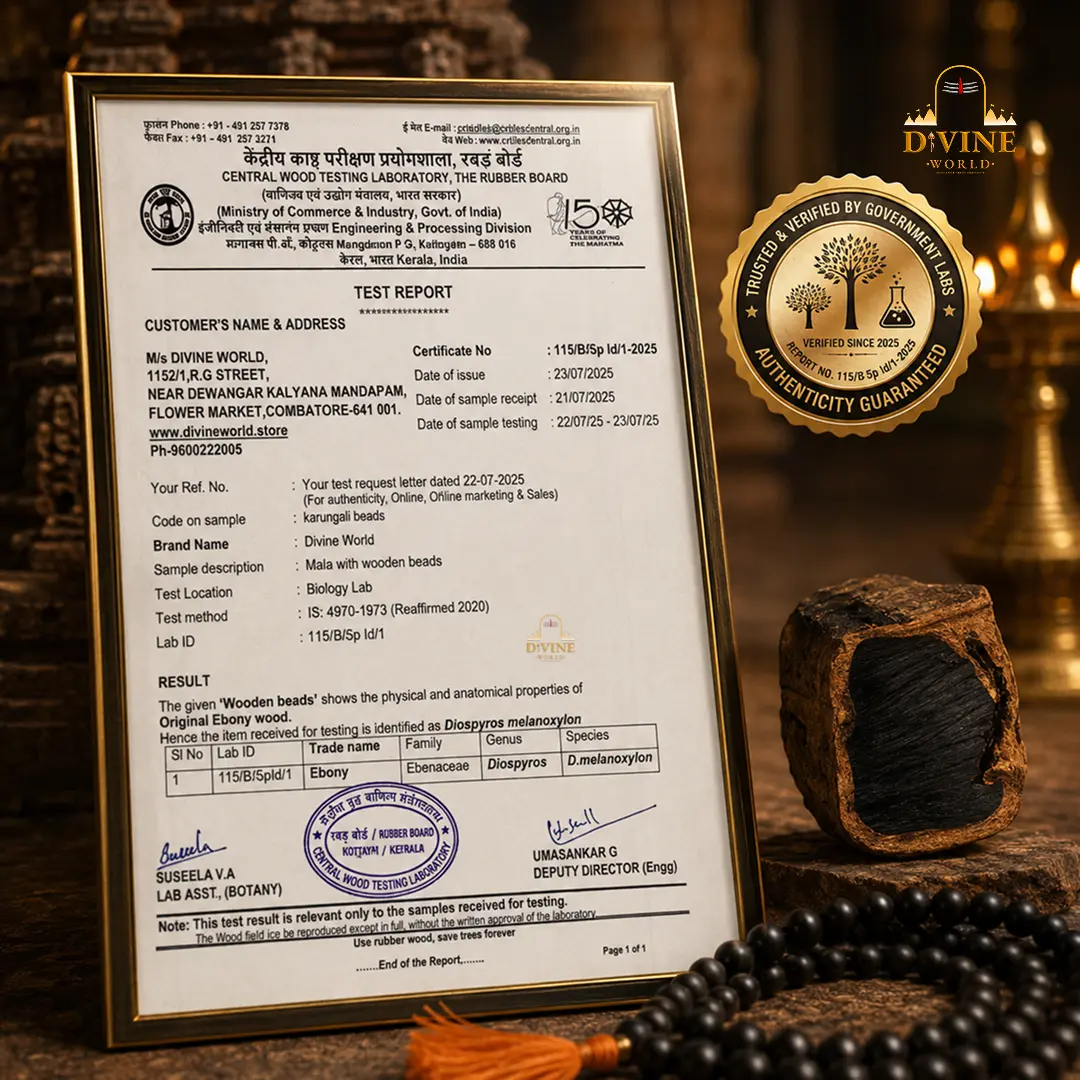 DIVINE
WORLD
फोन Phone : +91 - 491 257 7378
फैक्स Fax : +91 - 491 257 3271
ई मेत E-mail : crisdles@crblescentral.org.in
वेव Web : www.crtilescentral.org.in
केंद्रीय काष्ठ परीक्षण प्रयोगशाला, रबड़ बोर्ड
CENTRAL WOOD TESTING LABORATORY, THE RUBBER BOARD
(वाणिजव एवं उद्योग मंत्रालय, भारत सरकार)
(Ministry of Commerce & Industry, Govt. of India)
Engineering & Processing Division
Mangdmon P G, Kattogam – 688 016
केरल, भारत Kerala, India
150
YEARS OF
CELEBRATING
THE MAHATMA
TEST REPORT
*****************
CUSTOMER'S NAME & ADDRESS
M/s DIVINE WORLD,
1152/1,R.G STREET,
NEAR DEWANGAR KALYANA MANDAPAM,
FLOWER MARKET,COMBATORE-641 001.
www.divineworld.store
Ph-9600222005
Certificate No : 115/B/5p Id/1-2025
Date of issue : 23/07/2025
Date of sample receipt : 21/07/2025
Date of sample testing : 22/07/25 - 23/07/25
Your Ref. No. : Your test request letter dated 22-07-2025
(For authenticity, Online, Offline marketing & Sales)
Code on sample : karungali beads
Brand Name : Divine World
Sample description : Mala with wooden beads
Test Location : Biology Lab
Test method : IS: 4970-1973 (Reaffirmed 2020)
Lab ID : 115/B/5p Id/1
DIVINE
WORLD
RESULT
The given 'Wooden beads' shows the physical and anatomical properties of
Original Ebony wood.
Hence the item received for testing is identified as Diospyros melanoxylon
Sl No Lab ID Trade name Family Genus Species
1 115/B/5pId/1 Ebony Ebenaceae Diospyros D.melanoxylon
रबड़ बोर्ड / RUBBER BOARD
KOTJAYM / KEERALA
CENTRAL WOOD TESTING LABORATORY
Suseela
SUSEELA V.A
LAB ASST., (BOTANY)
UMASANKAR G
DEPUTY DIRECTOR (Engg)
Note: This test result is relevant only to the samples received for testing.
The Wood field ice be reproduced except in full, without the written approval of the laboratory
Use rubber wood, save trees forever
Page 1 of 1
.......End of the Report,......
TRUSTED & VERIFIED BY GOVERNMENT LABS
VERIFIED SINCE 2025
REPORT NO. 115/B 5p Id/1-2025
AUTHENTICITY GUARANTEED